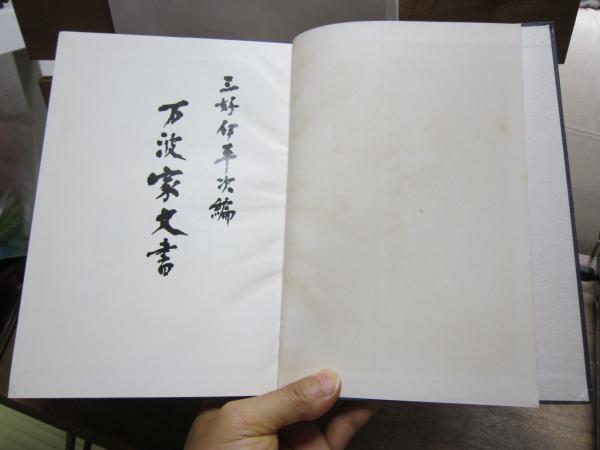 三好伊平次編
石波家文書